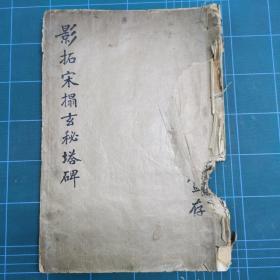 影拓宋搨玄秘塔碑
存